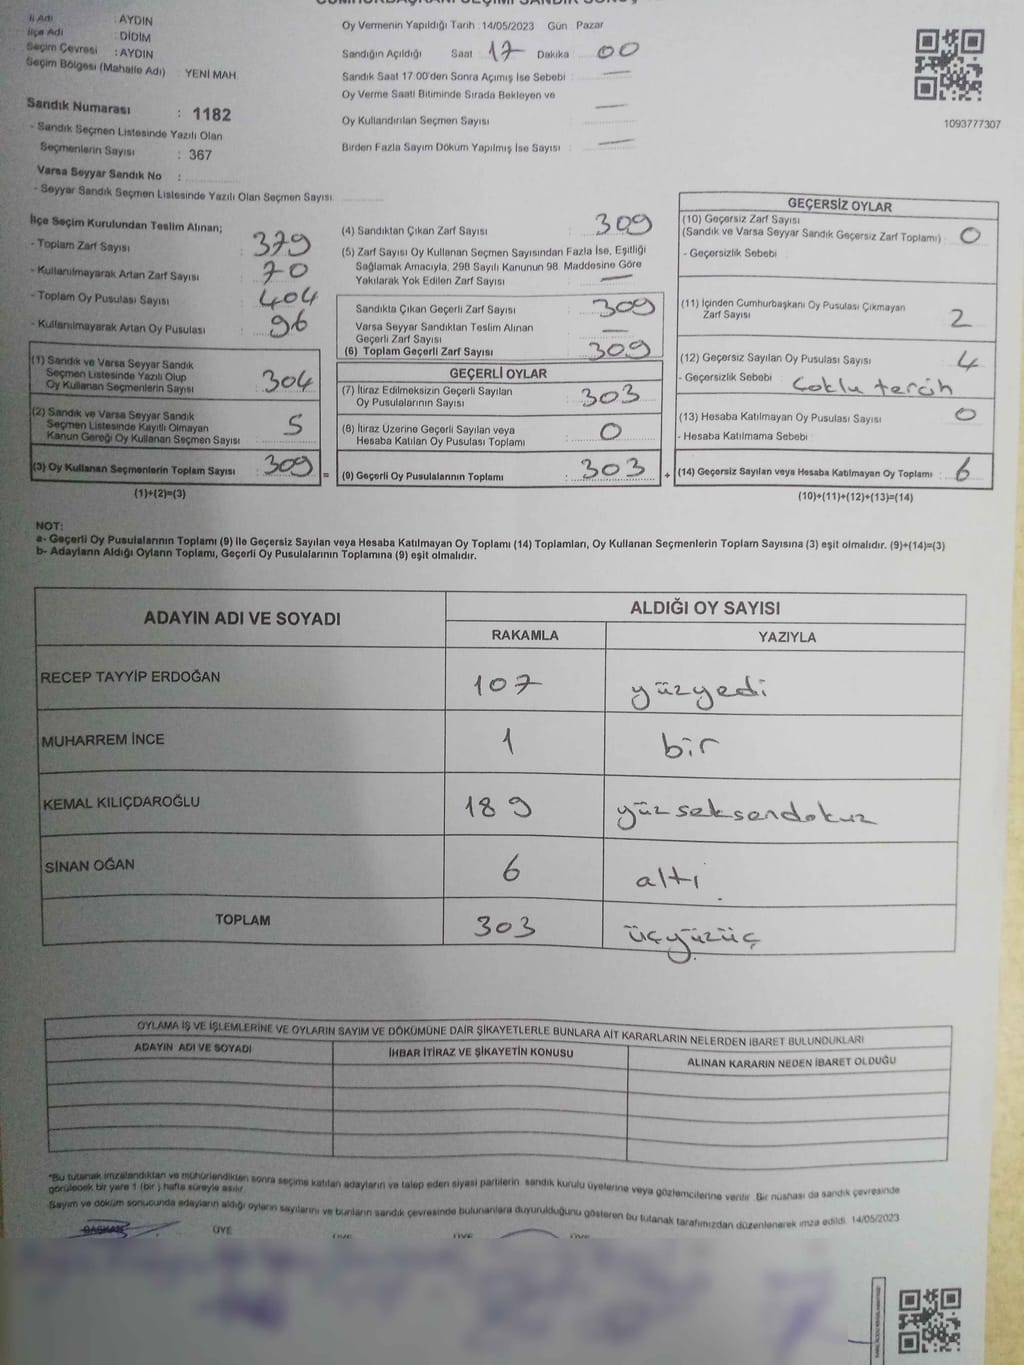 İl Adı : AYDIN
İlçe Adı : DİDİM
Seçim Çevresi : AYDIN
Seçim Bölgesi (Mahalle Adı) YENİ MAH.
Oy Vermenin Yapıldığı Tarih : 14/05/2023 Gün Pazar
Sandığın Açıldığı Saat 17 Dakika 00
Sandık Saat 17.00'den Sonra Açımış İse Sebebi : —
Oy Verme Saati Bitiminde Sırada Bekleyen ve
Oy Kullandırılan Seçmen Sayısı : —
Birden Fazla Sayım Döküm Yapılmış İse Sayısı : —
1093777307
Sandık Numarası : 1182
- Sandık Seçmen Listesinde Yazılı Olan
Seçmenlerin Sayısı : 367
Varsa Seyyar Sandık No :
- Seyyar Sandık Seçmen Listesinde Yazılı Olan Seçmen Sayısı:
İlçe Seçim Kurulundan Teslim Alınan;
- Toplam Zarf Sayısı : 379
- Kullanılmayarak Artan Zarf Sayısı : 70
- Toplam Oy Pusulası Sayısı : 404
- Kullanılmayarak Artan Oy Pusulası : 96
(1) Sandık ve Varsa Seyyar Sandık
Seçmen Listesinde Yazılı Olup
Oy Kullanan Seçmenlerin Sayısı : 304
(2) Sandık ve Varsa Seyyar Sandık
Seçmen Listesinde Kayıtlı Olmayan
Kanun Gereği Oy Kullanan Seçmen Sayısı : 5
(3) Oy Kullanan Seçmenlerin Toplam Sayısı : 309
(1)+(2)=(3)
=
(4) Sandıktan Çıkan Zarf Sayısı : 309
(5) Zarf Sayısı Oy Kullanan Seçmen Sayısından Fazla İse, Eşitliği
Sağlamak Amacıyla, 298 Sayılı Kanunun 98. Maddesine Göre
Yakılarak Yok Edilen Zarf Sayısı : —
Sandıkta Çıkan Geçerli Zarf Sayısı : 309
Varsa Seyyar Sandıktan Teslim Alınan
Geçerli Zarf Sayısı : —
(6) Toplam Geçerli Zarf Sayısı : 309
GEÇERLİ OYLAR
(7) İtiraz Edilmeksizin Geçerli Sayılan
Oy Pusulalarının Sayısı : 303
(8) İtiraz Üzerine Geçerli Sayılan veya
Hesaba Katılan Oy Pusulası Toplamı : 0
(9) Geçerli Oy Pusulalarının Toplamı : 303
+
GEÇERSİZ OYLAR
(10) Geçersiz Zarf Sayısı
(Sandık ve Varsa Seyyar Sandık Geçersiz Zarf Toplamı) : 0
- Geçersizlik Sebebi :
(11) İçinden Cumhurbaşkanı Oy Pusulası Çıkmayan
Zarf Sayısı : 2
(12) Geçersiz Sayılan Oy Pusulası Sayısı : 4
- Geçersizlik Sebebi : Çoklu tercih
(13) Hesaba Katılmayan Oy Pusulası Sayısı : 0
- Hesaba Katılmama Sebebi :
(14) Geçersiz Sayılan veya Hesaba Katılmayan Oy Toplamı : 6
(10)+(11)+(12)+(13)=(14)
NOT:
a- Geçerli Oy Pusulalarının Toplamı (9) ile Geçersiz Sayılan veya Hesaba Katılmayan Oy Toplamı (14) Toplamları, Oy Kullanan Seçmenlerin Toplam Sayısına (3) eşit olmalıdır. (9)+(14)=(3)
b- Adayların Aldığı Oyların Toplamı, Geçerli Oy Pusulalarının Toplamına (9) eşit olmalıdır.
ADAYIN ADI VE SOYADI ALDIĞI OY SAYISI
RAKAMLA YAZIYLA
RECEP TAYYİP ERDOĞAN 107 yüzyedi
MUHARREM İNCE 1 bir
KEMAL KILIÇDAROĞLU 189 yüz seksendokuz
SİNAN OĞAN 6 altı
TOPLAM 303 üçyüzüç
OYLAMA İŞ VE İŞLEMLERİNE VE OYLARIN SAYIM VE DÖKÜMÜNE DAİR ŞİKAYETLERLE BUNLARA AİT KARARLARIN NELERDEN İBARET BULUNDUKLARI
ADAYIN ADI VE SOYADI İHBAR İTİRAZ VE ŞİKAYETİN KONUSU ALINAN KARARIN NEDEN İBARET OLDUĞU
*Bu tutanak imzalandıktan ve mühürlendikten sonra seçime katılan adayların ve talep eden siyasi partilerin sandık kurulu üyelerine veya gözlemcilerine verilir. Bir nüshası da sandık çevresinde
görülecek bir yere 1 (bir) hafta süreyle asılır.
Sayım ve döküm sonucunda adayların aldığı oyların sayılarını ve bunların sandık çevresinde bulunanlara duyurulduğunu gösteren bu tutanak tarafımızdan düzenlenerek imza edildi. 14/05/2023
BAŞKAN ÜYE